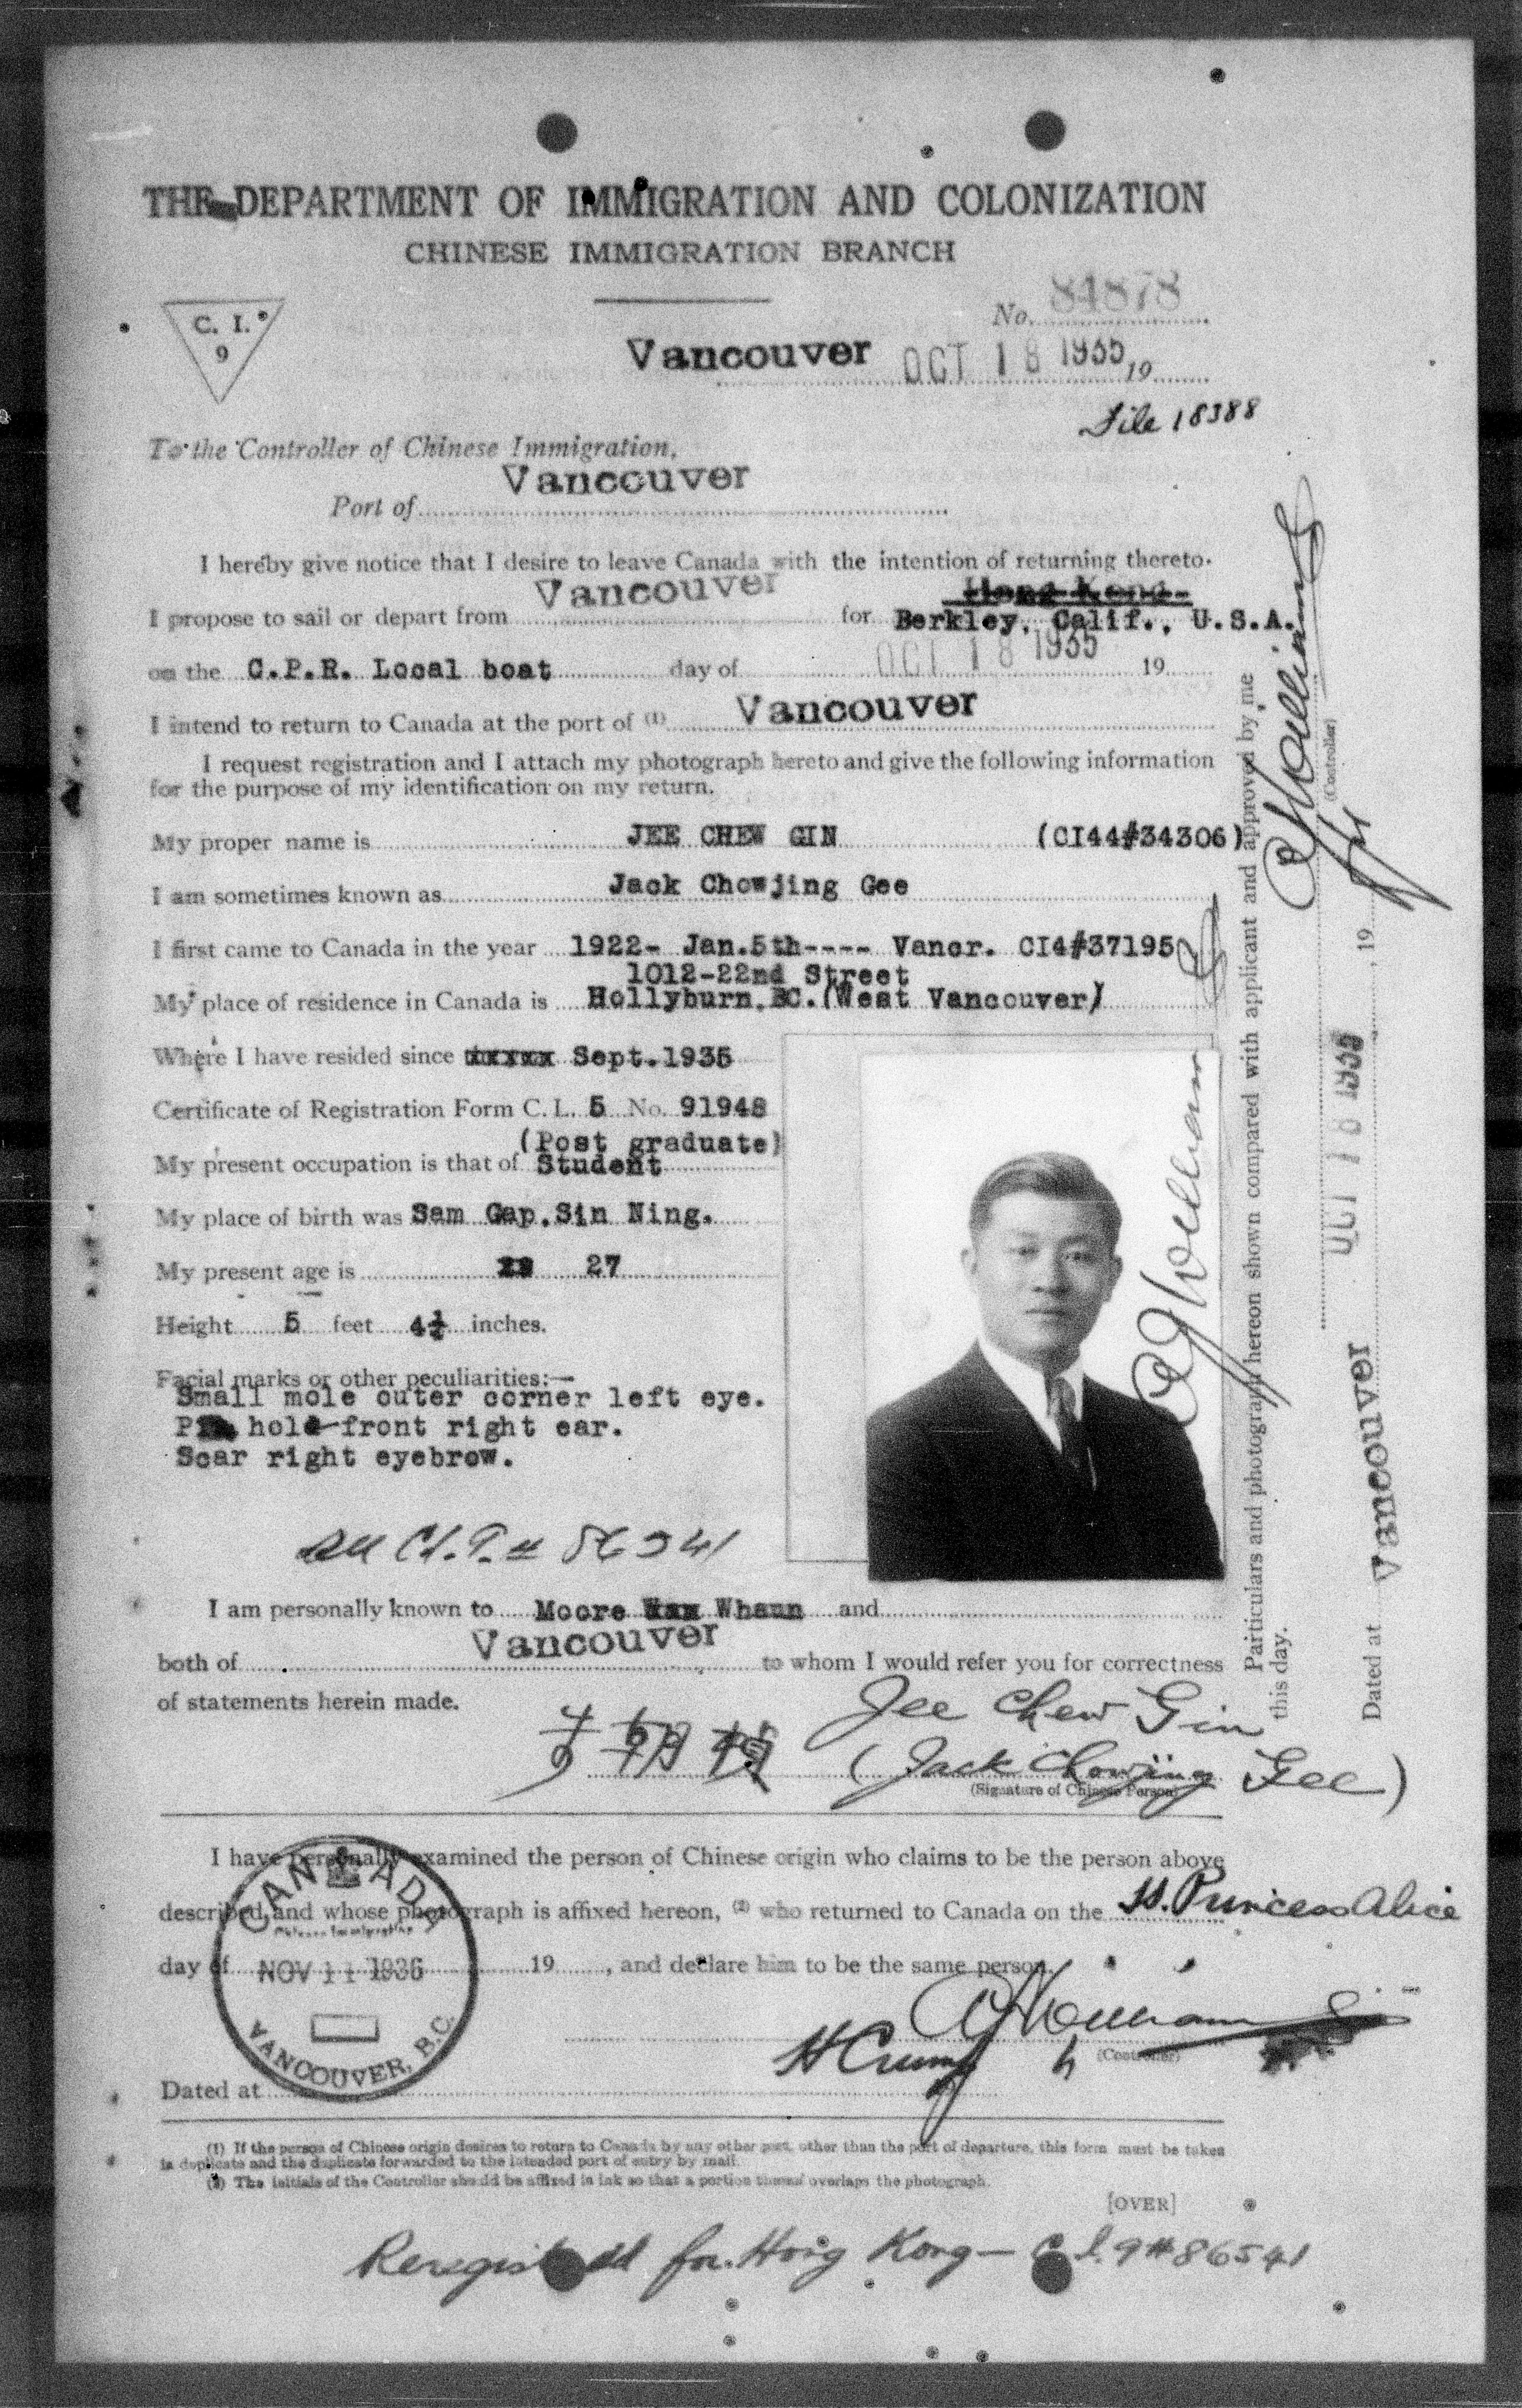 THE DEPARTMENT OF IMMIGRATION AND COLONIZATION
CHINESE IMMIGRATION BRANCH
C. I.
9
No. 84878
Vancouver OCT 18 1935, 19
File 18388
To the Controller of Chinese Immigration,
Port of Vancouver
I hereby give notice that I desire to leave Canada with the intention of returning thereto.
Hong Kong
I propose to sail or depart from Vancouver for Berkley, Calif., U.S.A.
on the C.P.R. Local boat day of OCT 18 1935 19
I intend to return to Canada at the port of (1) Vancouver
I request registration and I attach my photograph hereto and give the following information
for the purpose of my identification on my return.
My proper name is JEE CHEW GIN (CI44#34306)
I am sometimes known as Jack Chowjing Gee
I first came to Canada in the year 1922- Jan.5th---- Vancr. CI4#37195
1012-22nd Street
My place of residence in Canada is Hollyburn, BC. (West Vancouver)
Where I have resided since xxxxx Sept.1935
Certificate of Registration Form C. I. 5 No. 91948
(Post graduate)
My present occupation is that of Student
My place of birth was Sam Gap, Sin Ning.
My present age is 27
Height 5 feet 4½ inches.
Facial marks or other peculiarities:—
Small mole outer corner left eye.
Pin hole front right ear.
Scar right eyebrow.
I am personally known to Moore Whaun and
both of Vancouver to whom I would refer you for correctness
of statements herein made.
Jee Chew Gin
(Jack Chowjing Gee)
(Signature of Chinese Person)
I have personally examined the person of Chinese origin who claims to be the person above
described, and whose photograph is affixed hereon, (2) who returned to Canada on the SS. Princess Alice
day of NOV 11 1936 19 , and declare him to be the same person.
CANADA
Chinese Immigration
VANCOUVER, B.C.
H Crump
(Controller)
Dated at
(1) If the person of Chinese origin desires to return to Canada by any other port, other than the port of departure, this form must be taken
in duplicate and the duplicate forwarded to the intended port of entry by mail.
(2) The initials of the Controller should be affixed in ink so that a portion thereof overlaps the photograph.
[OVER]
Reregistered for Hong Kong — C.I.9#86541
Particulars and photograph hereon shown compared with applicant and approved by me
this day.
(Controller)
Dated at Vancouver OCT 18 1935, 19